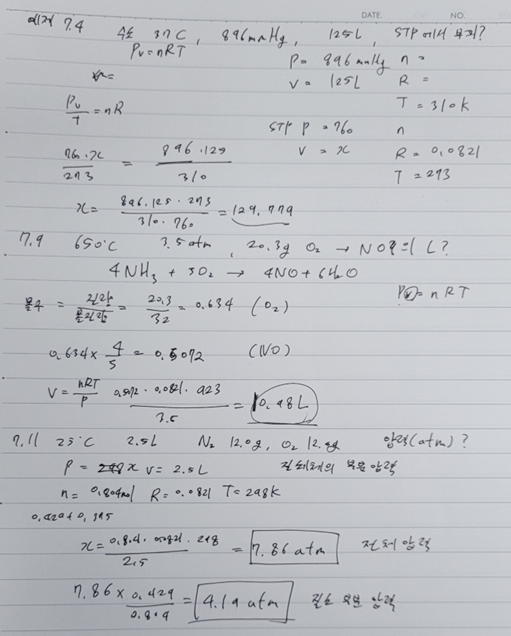 DATE. NO.
예제 7.4 수소 37℃, 896mmHg, 125L, STP에서 부피?
PV=nRT P= 896mmHg n=
V= 125L R=
T=310K
PV/T = nR
STP P=760 n
V = x R= 0.0821
T=273
760·x/273 = 896·125/310
x= 896.125.273/310.760 = 129.779
7.9 650℃ 3.5atm, 20.3g O₂ → NO몇 L?
4NH₃ + 5O₂ → 4NO+6H₂O
몰수 = 질량/몰질량 = 20.3/32 = 0.634 (O₂) PV=nRT
0.634×4/5=0.5072 (NO)
V=nRT/P 0.5072·0.0821·923/3.5 = 10.98L
7.11 25℃ 2.5L N₂ 12.0g, O₂ 12.6g 압력(atm)?
P= x V=2.5L 부분압력
n=0.804mol R=0.0821 T=298K
x=0.804·0.0821·298/2.5 = 7.86 atm 전체 압력
7.86×0.429/0.804=4.19atm 질소 부분 압력